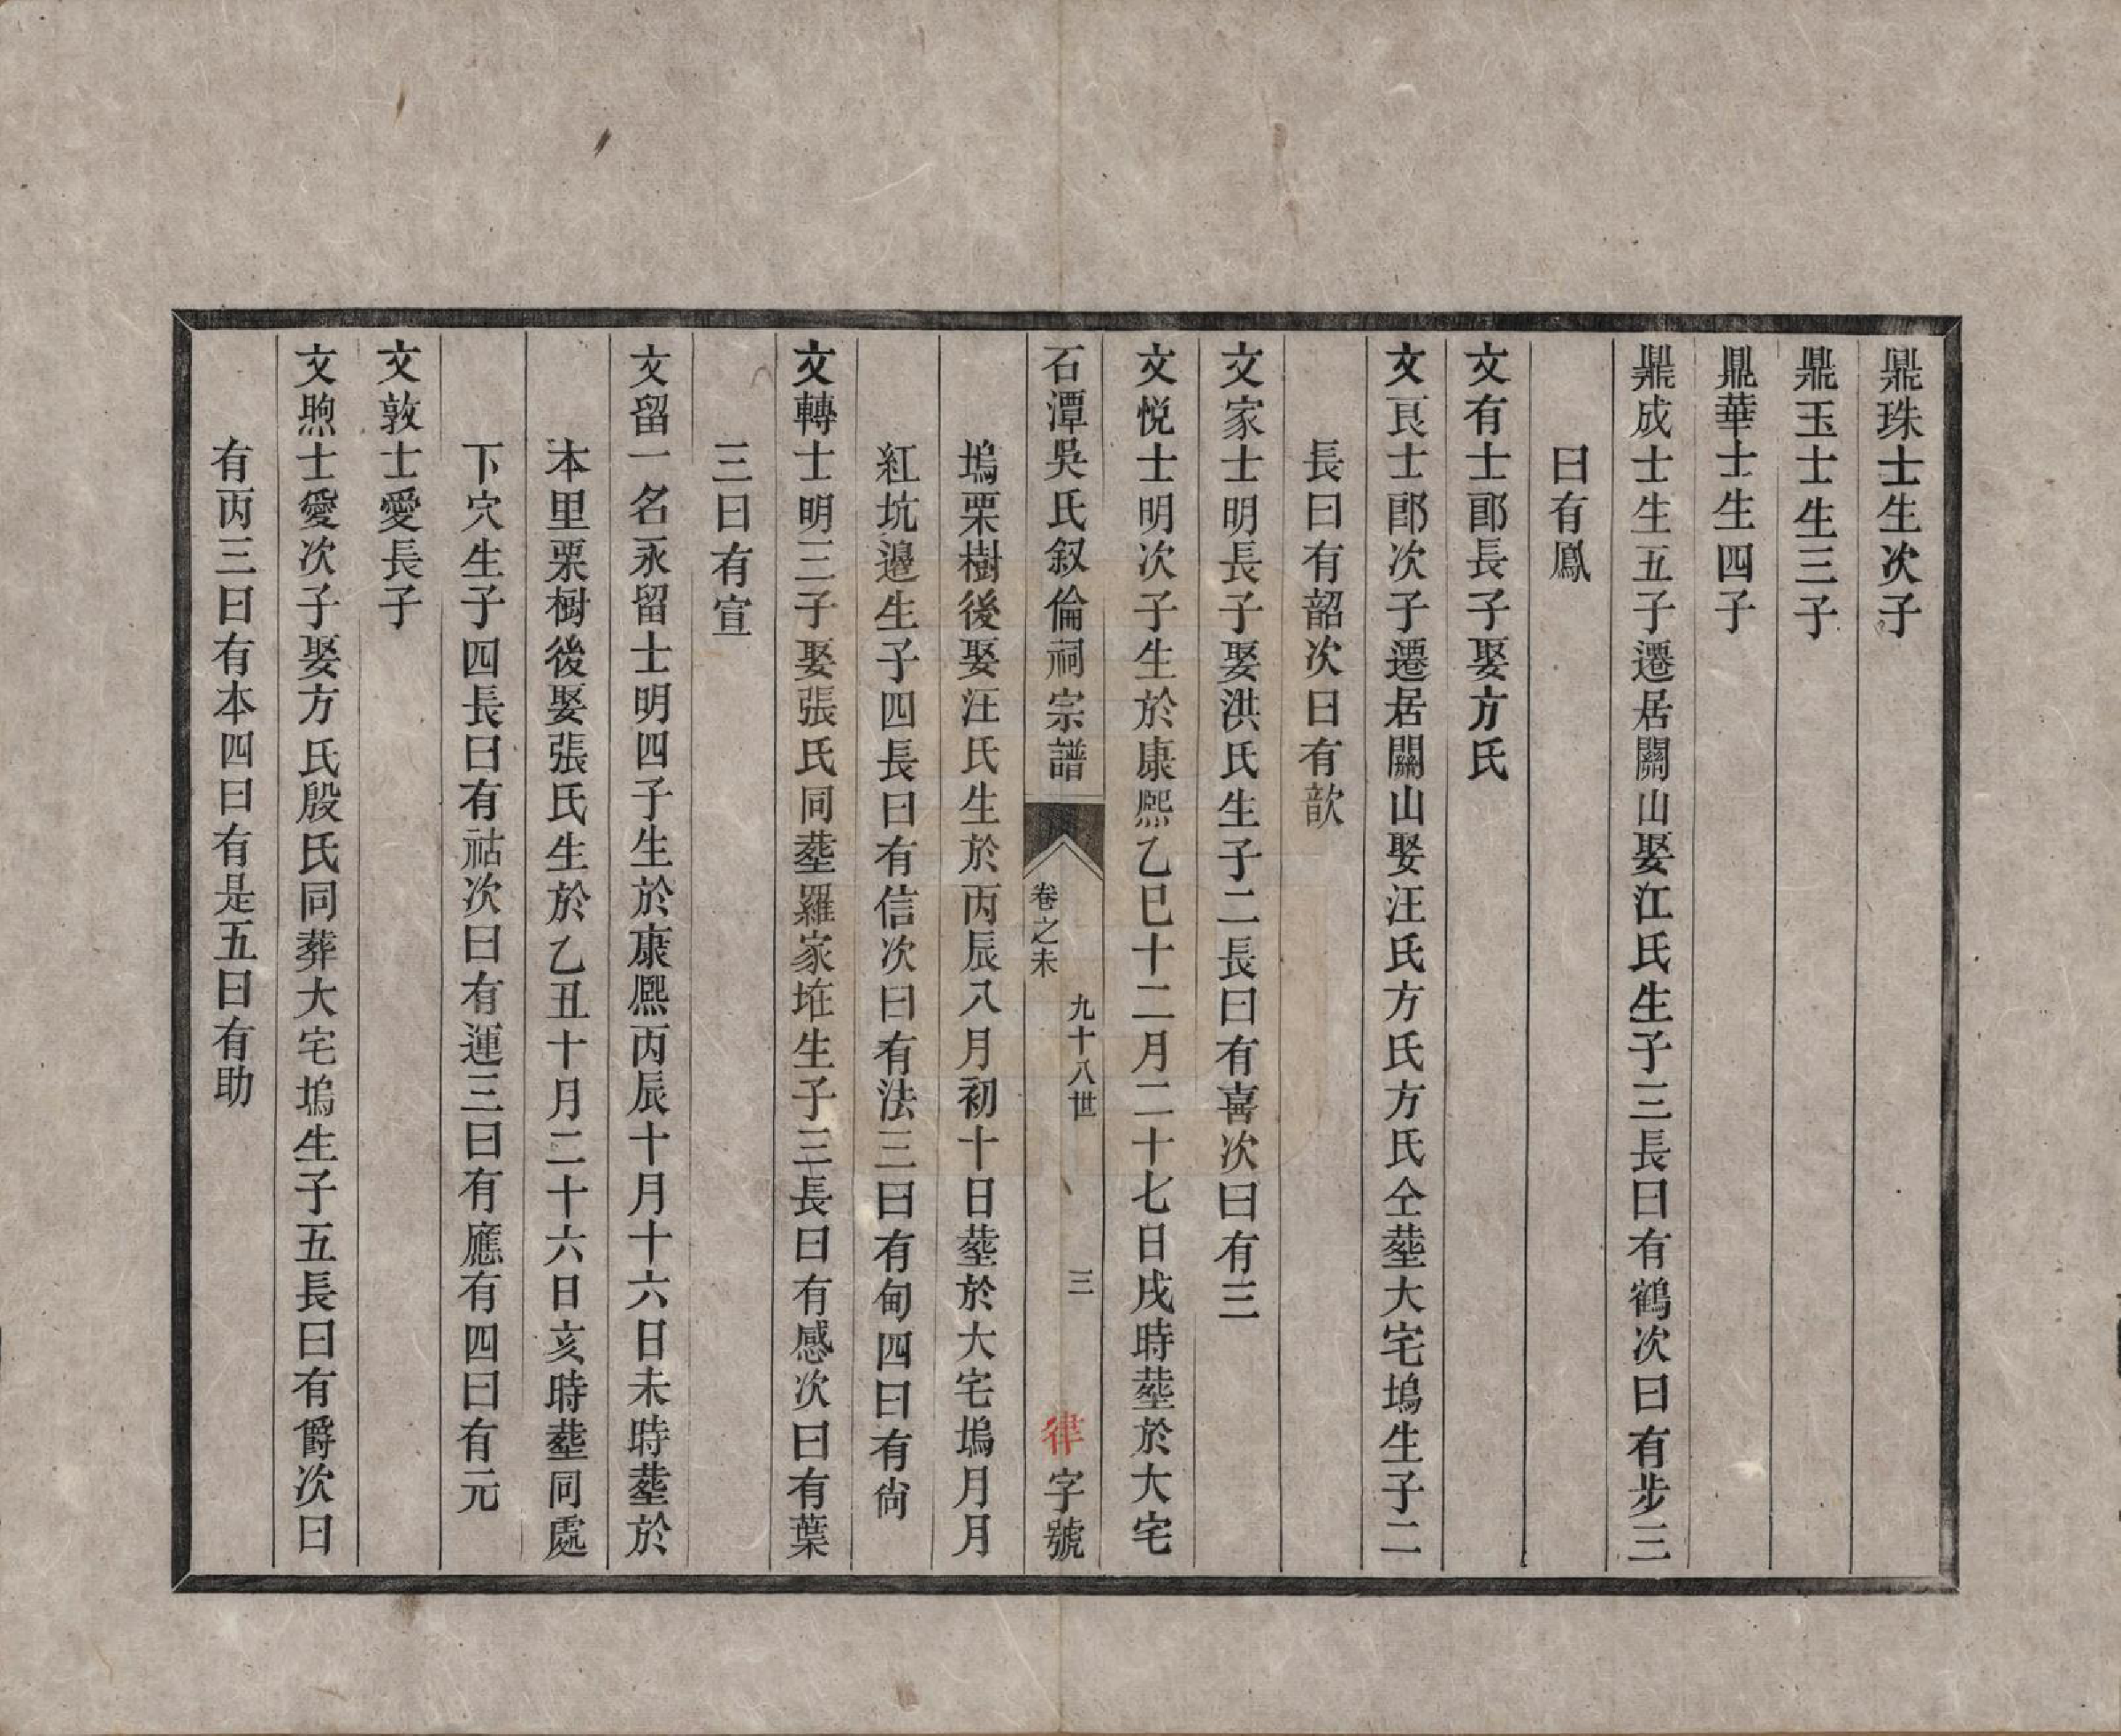 鼎珠士生次子
鼎玉士生三子
鼎華士生四子
鼎成士生五子遷居關山娶江氏生子三長曰有鶴次曰有步三
曰有鳳
文有士郎長子娶方氏
文良士郎次子遷居關山娶汪氏方氏方氏仝塟大宅塢生子二
長曰有韶次曰有歆
文家士明長子娶洪氏生子二長曰有喜次曰有三
文悅士明次子生於康熙乙巳十二月二十七日戌時塟於大宅
塢栗樹後娶汪氏生於丙辰八月初十日塟於大宅塢月月
紅坑邉生子四長曰有信次曰有法三曰有甸四曰有尙
石潭吳氏叙倫祠宗譜
卷之未
九十八世
三
律字號
文轉士明三子娶張氏同塟羅家㘵生子三長曰有感次曰有葉
三曰有宣
文留一名永留士明四子生於康熙丙辰十月十六日未時塟於
本里栗樹後娶張氏生於乙丑十月二十六日亥時塟同處
下穴生子四長曰有祜次曰有運三曰有應有四曰有元
文敦士愛長子
文煦士愛次子娶方氏殷氏同葬大宅塢生子五長曰有爵次曰
有丙三曰有本四曰有是五曰有助